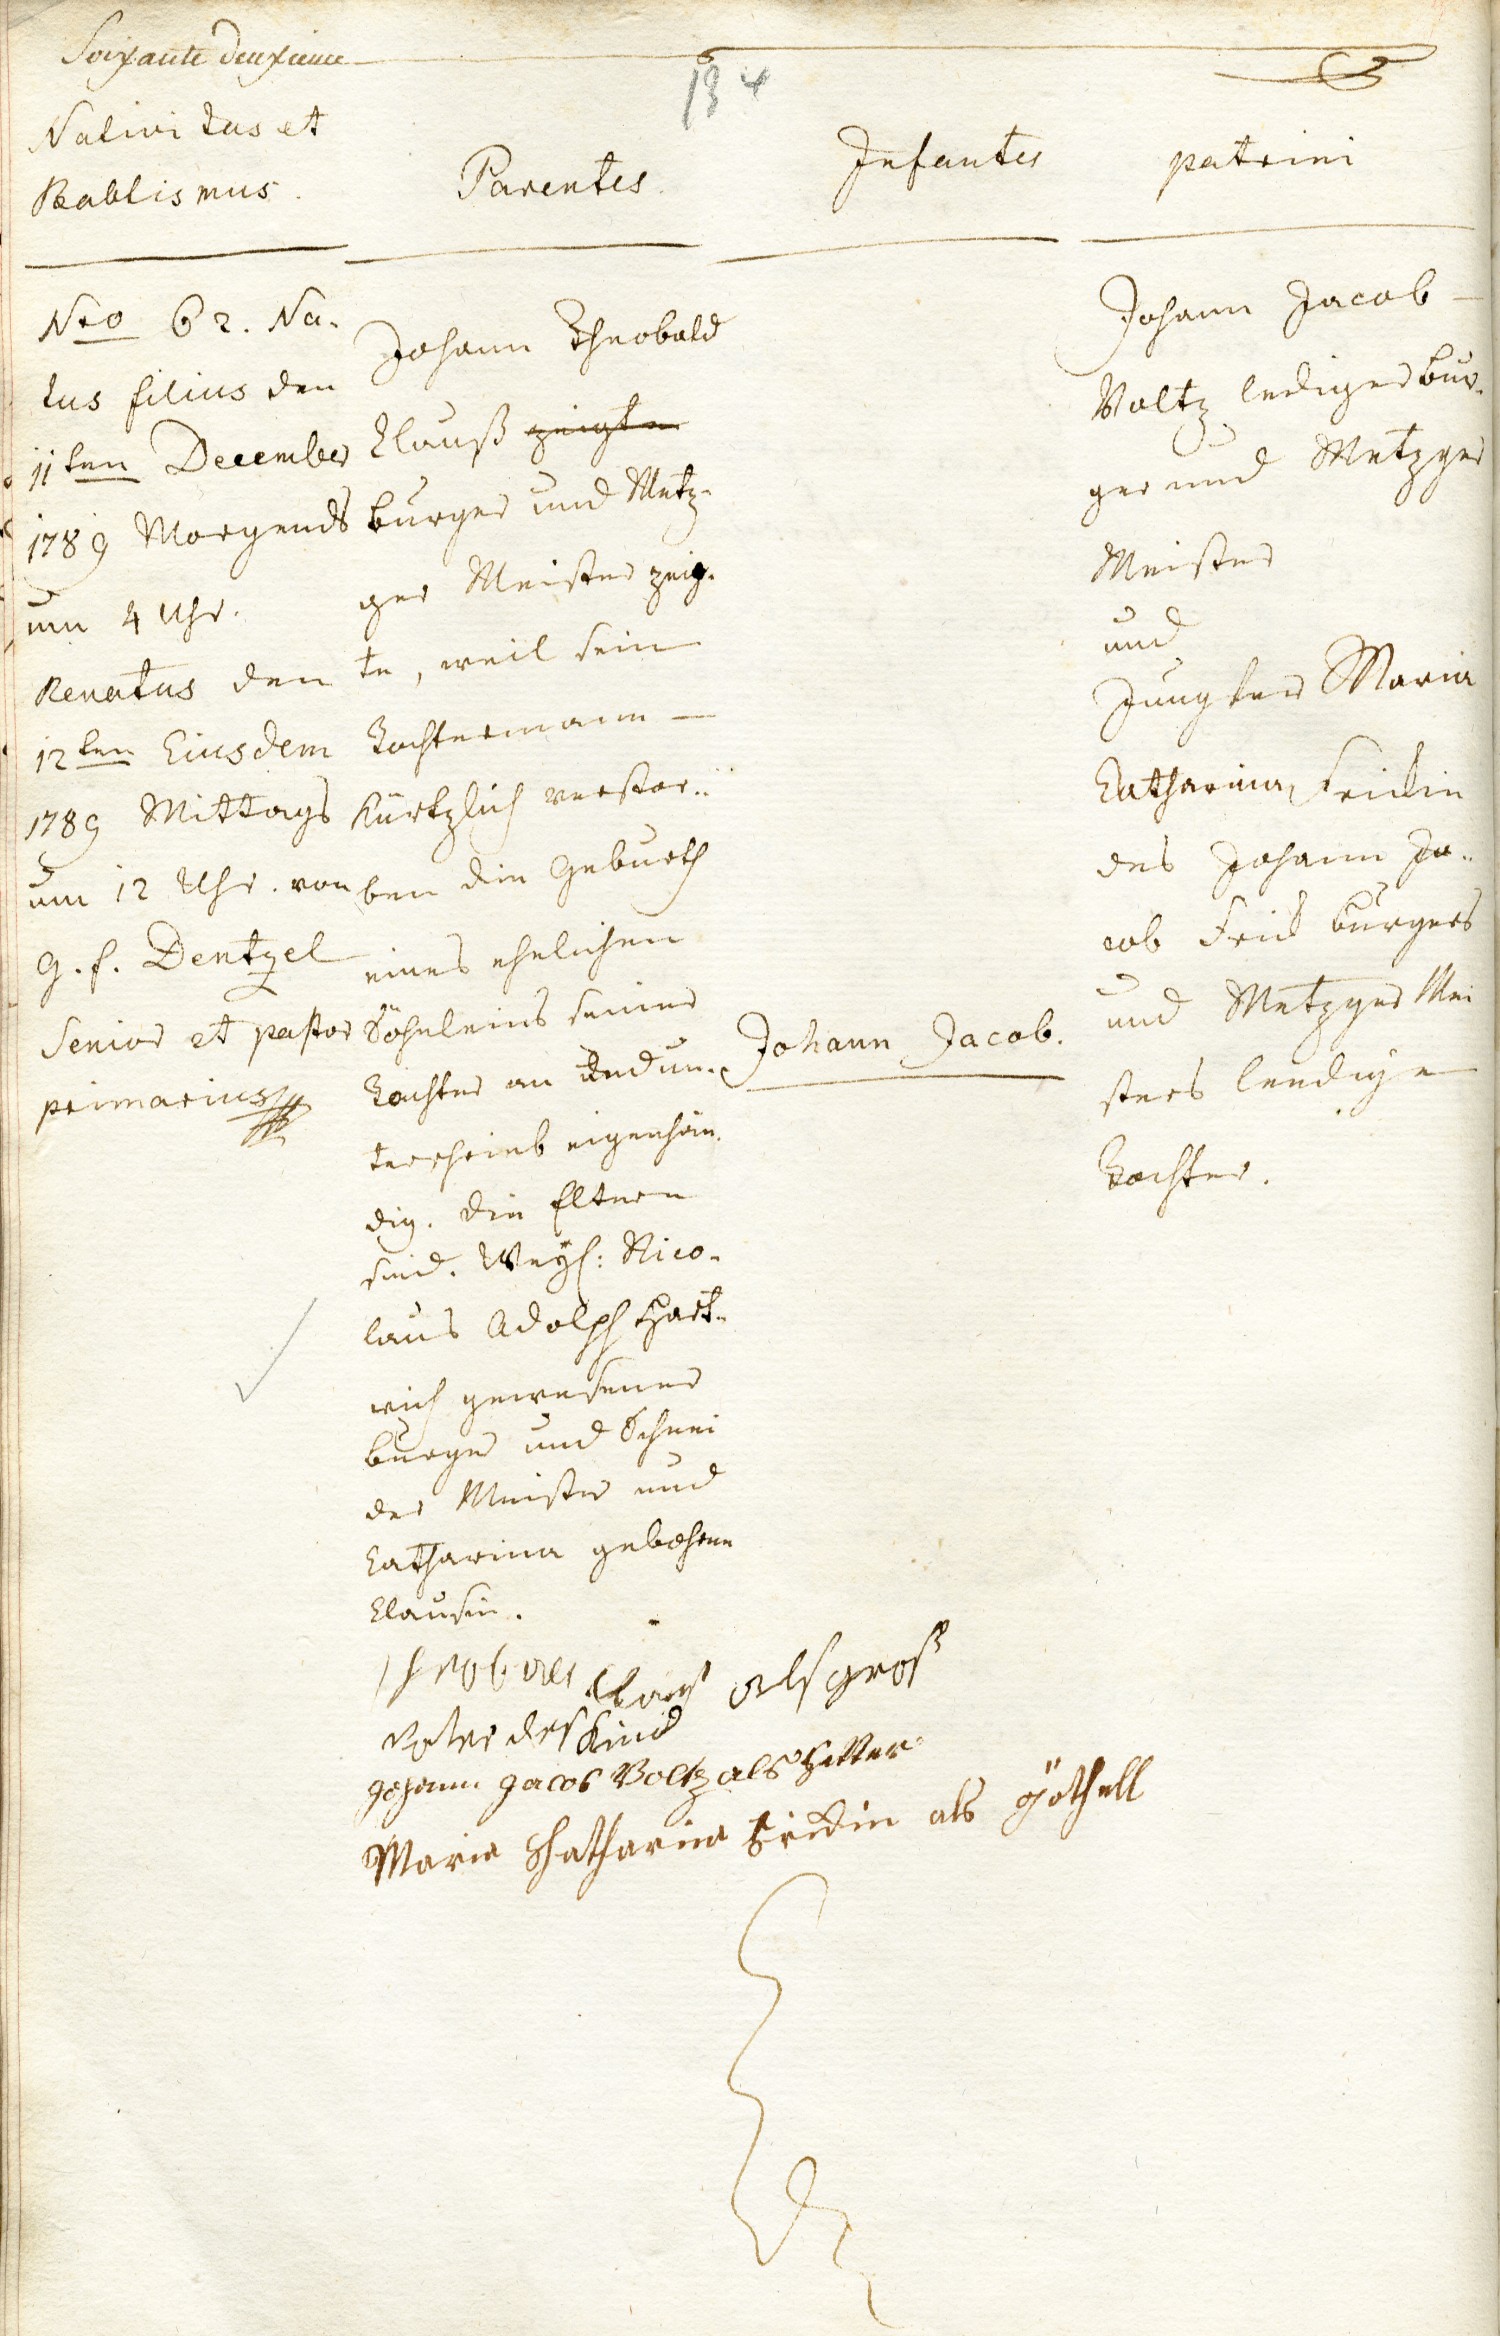 Soixante deuxieme
134
Nativitas et
Babtismus.
Parentes.
Infantes
patrini
Nro 62. Na-
tus filius den
11ten December
1789 Morgends
um 4 Uhr.
Renatus den
12ten Eiusdem
1789 Mittags
um 12 Uhr. von
G. f. Dentzel
Senior et pastor
primarius
Johann Theobald
Clauß zeigte
burger und Metz-
ger Meister zeig-
te, weil sein
Tochtermann
kürtzlich verstor-
ben die Geburth
eines ehelichen
Söhnleins seiner
Tochter an und un-
terschrieb eigenhän-
dig. Die Eltern
sind. Weyl: Nico-
laus Adolph Hart-
wich gewesener
burger und Schnei
der Meister und
Catharina gebohrne
Clausin.
Johann Jacob.
Johann Jacob
Voltz lediger bur-
ger und Metzger
Meister
und
Jungfer Maria
Catharina Fridin
des Johann Ja-
cob Frid burgers
und Metzger Mei
sters ledige
Tochter.
Theobald Clauß als groß
vater des Kind
Johann Jacob Voltz als Petter
Maria Chatharina Fridin als göthell